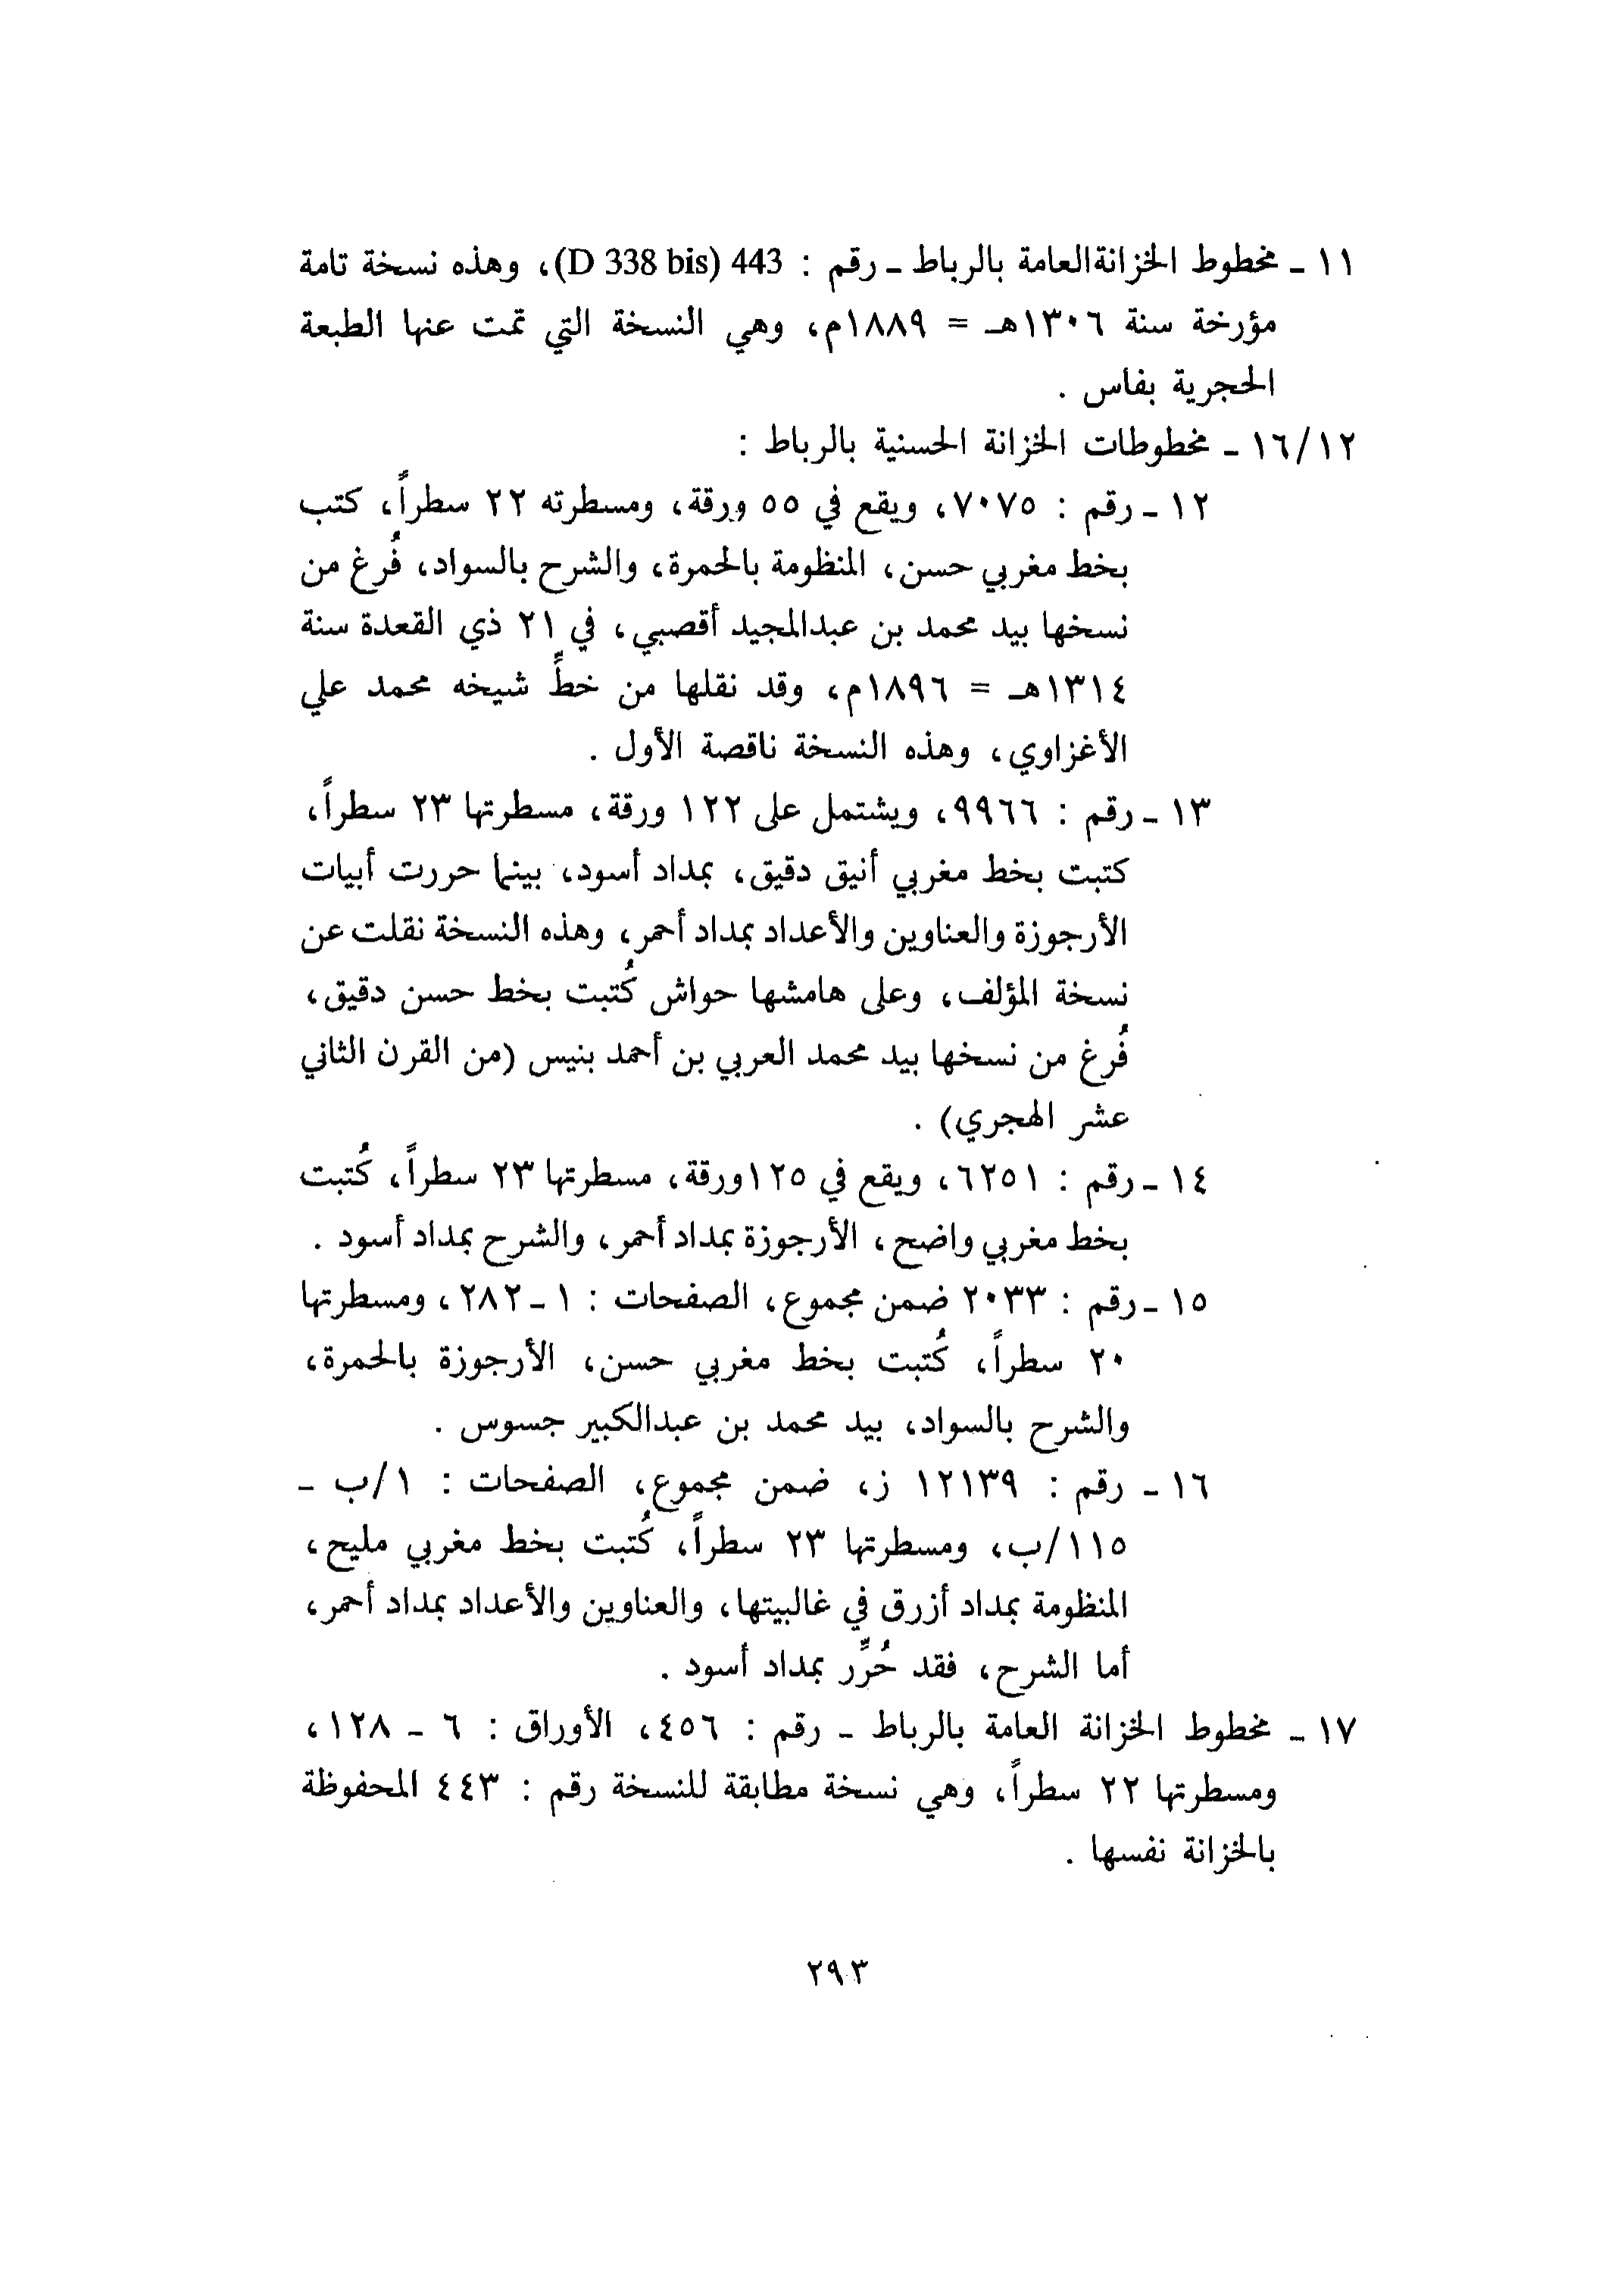 ١١ ـ مخطوط الخزانة العامة بالرباط ـ رقم : 443 (D 338 bis)، وهذه نسخة تامة
مؤرخة سنة ١٣٠٦هـ = ١٨٨٩م، وهي النسخة التي تمت عنها الطبعة
الحجرية بفاس .
١٦/١٢ ـ مخطوطات الخزانة الحسنية بالرباط :
١٢ ـ رقم : ٧٠٧٥، ويقع في ٥٥ ورقة، ومسطرته ٢٢ سطراً، كتب
بخط مغربي حسن، المنظومة بالحمرة، والشرح بالسواد، فُرغ من
نسخها بيد محمد بن عبدالمجيد أقصبي، في ٢١ ذي القعدة سنة
١٣١٤هـ = ١٨٩٦م، وقد نقلها من خطِّ شيخه محمد علي
الأغزاوي، وهذه النسخة ناقصة الأول .
١٣ ـ رقم : ٩٩٦٦، ويشتمل على ١٢٢ ورقة، مسطرتها ٢٣ سطراً،
كتبت بخط مغربي أنيق دقيق، بمداد أسود، بينما حررت أبيات
الأرجوزة والعناوين والأعداد بمداد أحمر، وهذه النسخة نقلت عن
نسخة المؤلف، وعلى هامشها حواش كُتبت بخط حسن دقيق،
فُرغ من نسخها بيد محمد العربي بن أحمد بنيس (من القرن الثاني
عشر الهجري) .
١٤ ـ رقم : ٦٢٥١، ويقع في ١٢٥ورقة، مسطرتها ٢٣ سطراً، كُتبت
بخط مغربي واضح، الأرجوزة بمداد أحمر، والشرح بمداد أسود .
١٥ ـ رقم : ٢٠٣٣ ضمن مجموع، الصفحات : ١ ـ ٢٨٢، ومسطرتها
٢٠ سطراً، كُتبت بخط مغربي حسن، الأرجوزة بالحمرة،
والشرح بالسواد، بيد محمد بن عبدالكبير جسوس .
١٦ ـ رقم : ١٢١٣٩ ز، ضمن مجموع، الصفحات : ١/ب ـ
١١٥/ب، ومسطرتها ٢٣ سطراً، كُتبت بخط مغربي مليح،
المنظومة بمداد أزرق في غالبيتها، والعناوين والأعداد بمداد أحمر،
أما الشرح، فقد حُرِّر بمداد أسود .
١٧ ـ مخطوط الخزانة العامة بالرباط ـ رقم : ٤٥٦، الأوراق : ٦ ـ ١٢٨،
ومسطرتها ٢٢ سطراً، وهي نسخة مطابقة للنسخة رقم : ٤٤٣ المحفوظة
بالخزانة نفسها .
٢٩٣